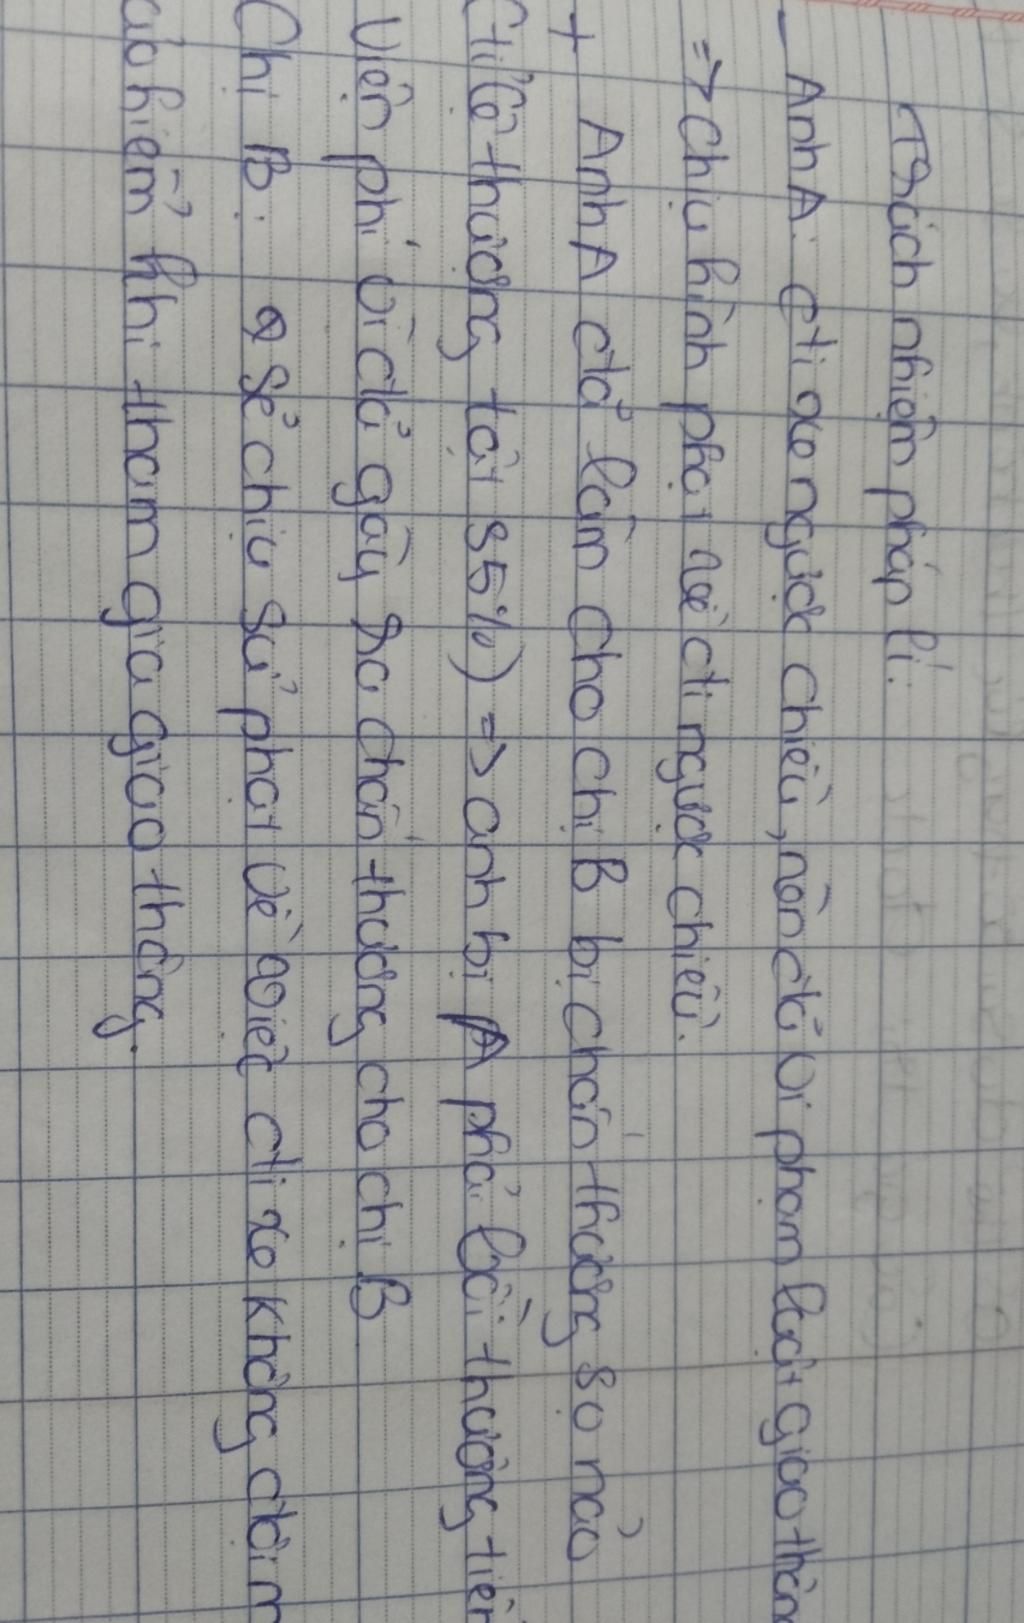 Trách nhiệm pháp lí:
- Anh A: đi xe ngược chiều, nên đã vi phạm luật giao thôn
=> Chịu hình phạt về đi ngược chiều.
+ Anh A đã làm cho chị B bị chấn thương sọ não
(tỉ lệ thương tật 35%) => anh bị A phải bồi thường tiền
viện phí vì đã gây ra chấn thương cho chị B
Chị B: sẽ chịu sử phạt về việc đi xe không đội m
ảo hiểm khi tham gia giao thông.